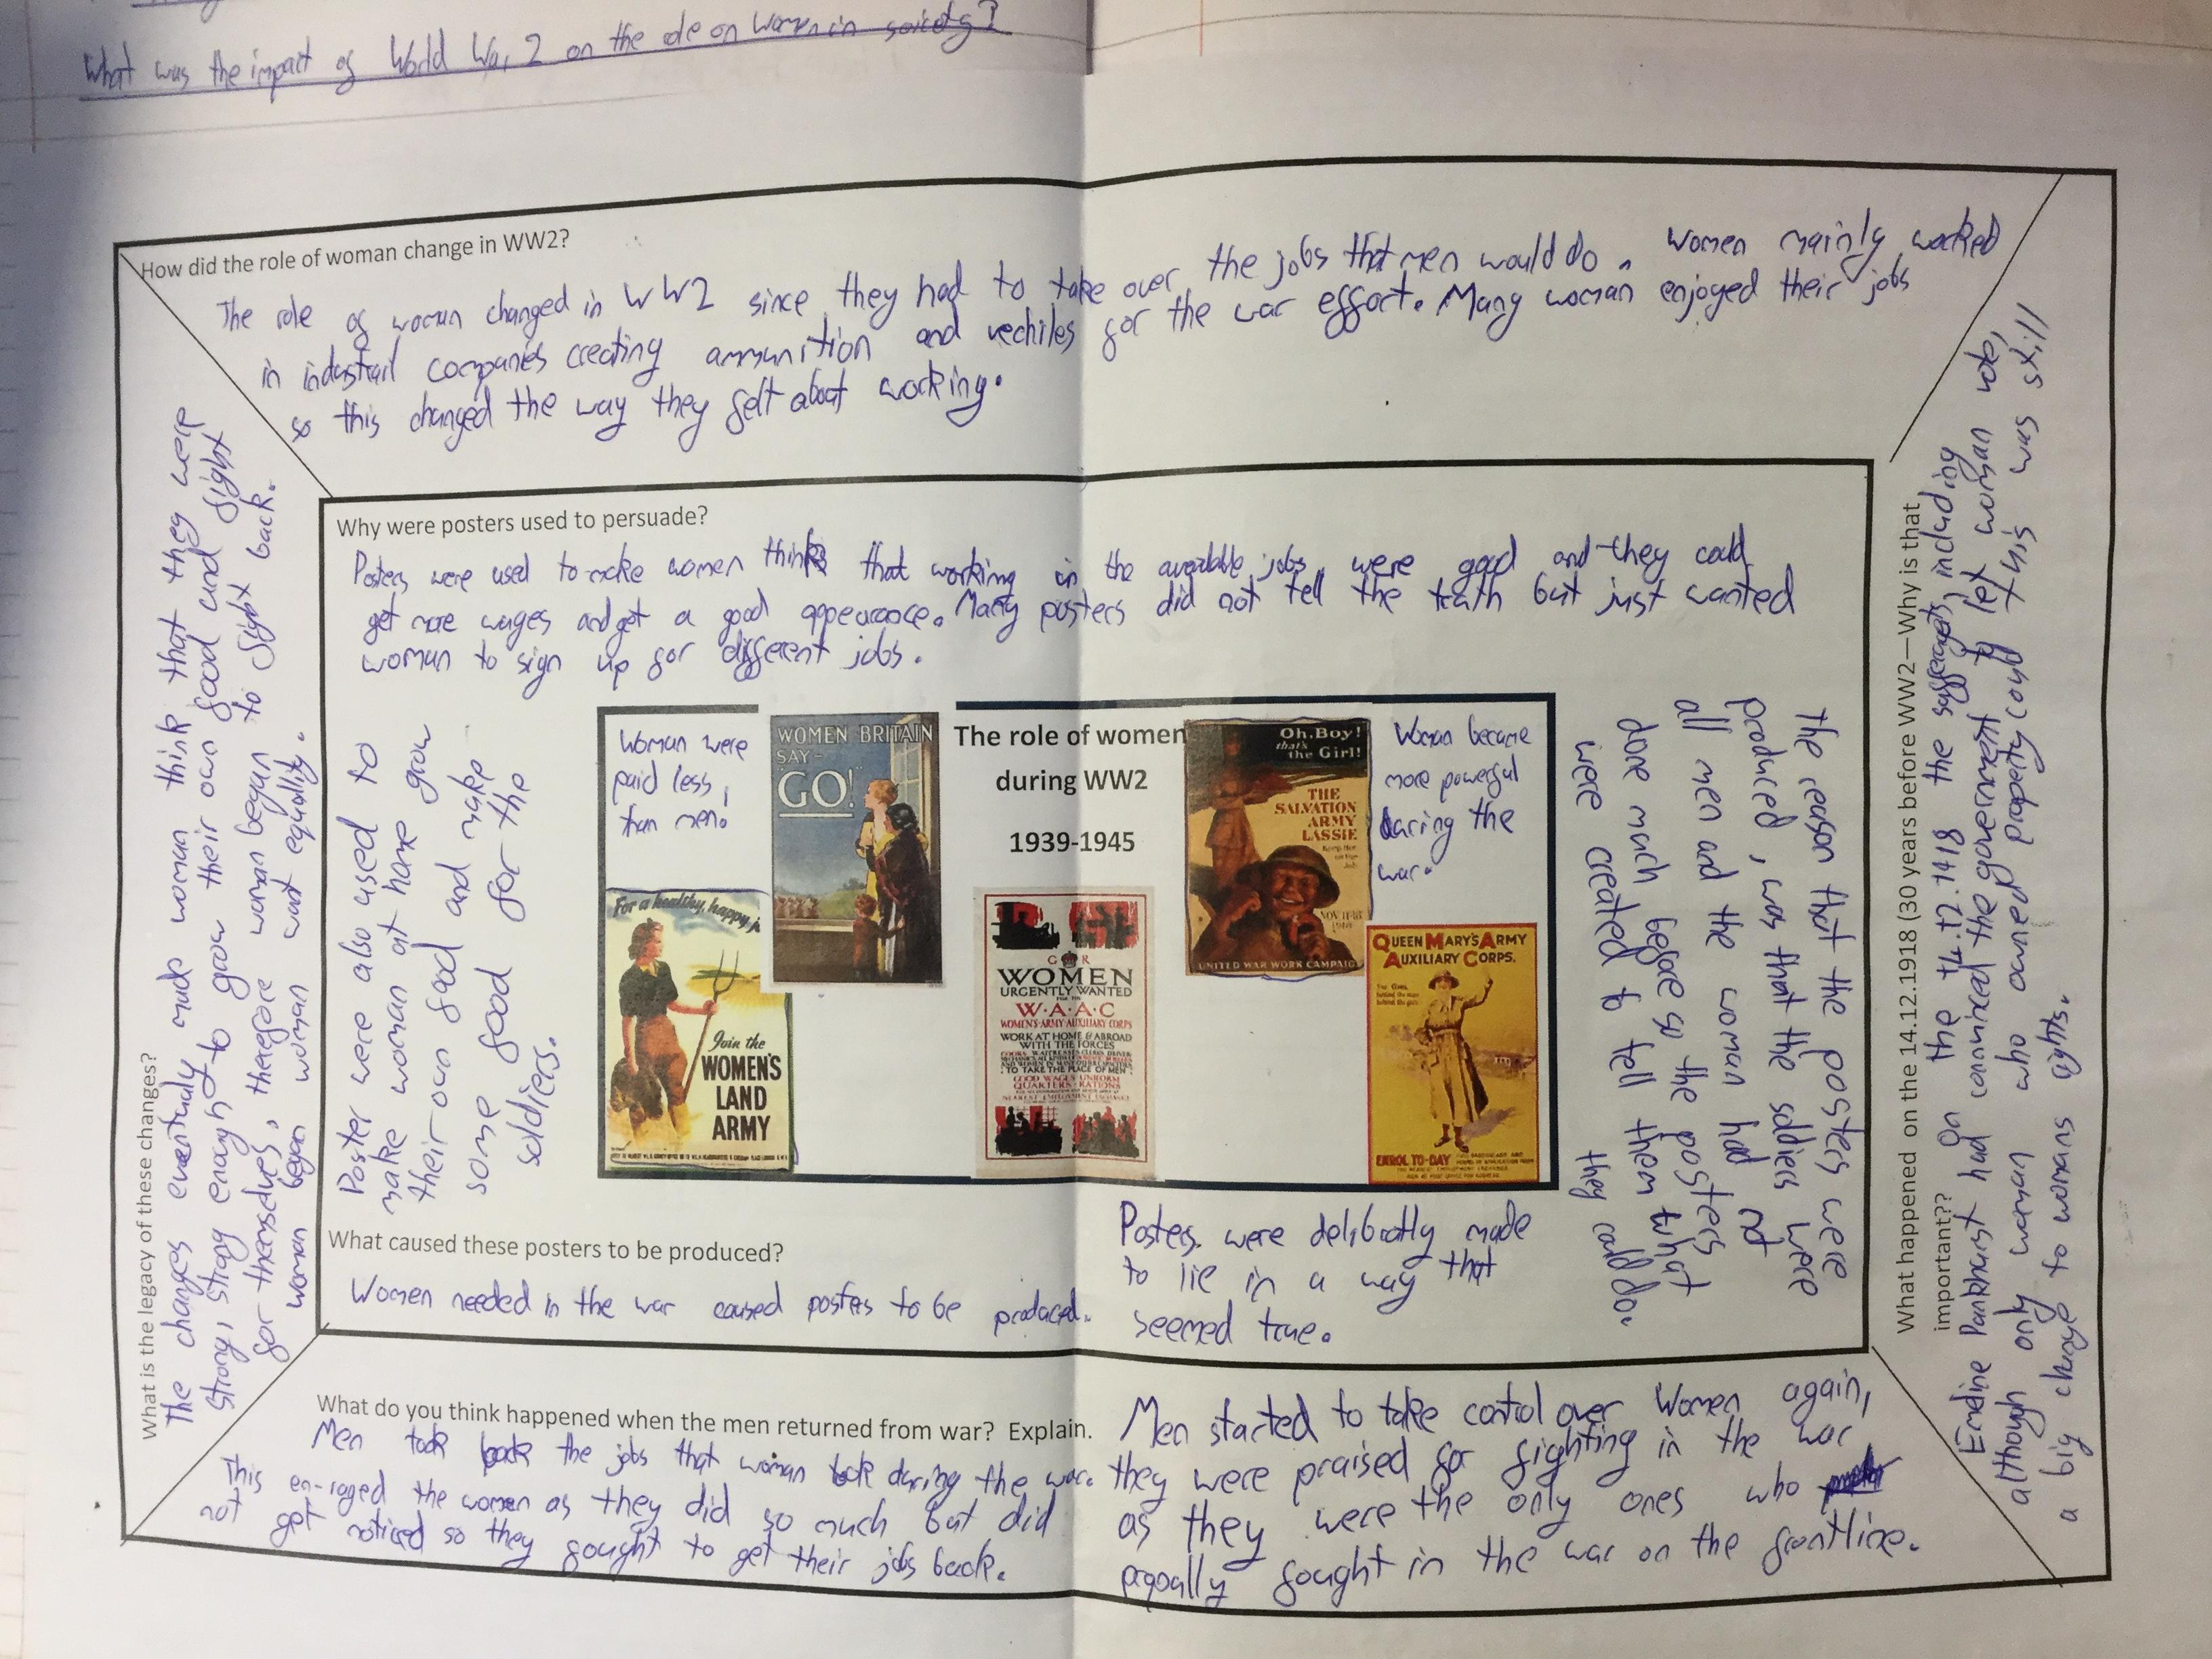 What was the impact of World War 2 on the role on women in soicety?
How did the role of woman change in WW2?
The role of woman changed in WW2 since they had to take over the jobs that men would do. Women mainly worked
in industrail companies creating ammunition and vechiles for the war effort. Many woman enjoyed their jobs
so this changed the way they felt about working.
What is the legacy of these changes?
The changes eventually made woman think that they were
strong, strong enough to grow their own food and fight
for themselves, therefore woman began to fight back.
woman began woman want equality.
Why were posters used to persuade?
Posters were used to make women think that working in the available jobs were good and they could
get more wages and get a good appearance. Many posters did not tell the truth but just wanted
woman to sign up for different jobs.
Poster were also used to
make woman at home grow
their own food and make
some good food for the
soldiers.
Woman were
paid less
than men!
WOMEN BRITAIN
SAY-
"GO!"
The role of women
during WW2
1939-1945
Oh, Boy!
that's
the Girl!
THE
SALVATION
ARMY
LASSIE
NOV 11-18
1918
UNITED WAR WORK CAMPAIG
Woman became
more powerful
during the
war.
For a healthy, happy j
Join the
WOMEN'S
LAND
ARMY
G R
WOMEN
URGENTLY WANTED
FOR THE
W·A·A·C
WOMEN'S·ARMY·AUXILIARY·CORPS
WORK AT HOME & ABROAD
WITH THE FORCES
TO TAKE THE PLACE OF MEN
GOOD WAGES·UNIFORM
QUARTERS·RATIONS
QUEEN MARY'S ARMY
AUXILIARY CORPS.
The Girl
behind the man
behind the gun
ENROL TO-DAY
The reason that the posters were
produced, was that the soldiers were
all men and the woman had not
done much before so the posters
were created to tell them what
they could do.
What caused these posters to be produced?
Women needed in the war caused posters to be produced.
Posters were delibratly made
to lie in a way that
seemed true.
What happened on the 14.12.1918 (30 years before WW2—Why is that
important??
On the 14.12.1918 the suffergets, including
Emeline Pankhurst had convinced the government to let woman vote,
although only woman who owned property could this was still
a big change to womans rights.
What do you think happened when the men returned from war? Explain.
Men took back the jobs that woman took during the war.
This en-raged the women as they did so much but did
not get noticed so they fought to get their jobs back.
Men started to take control over Women again,
they were praised for fighting in the war
as they were the only ones who
pyqoally fought in the war on the frontline.